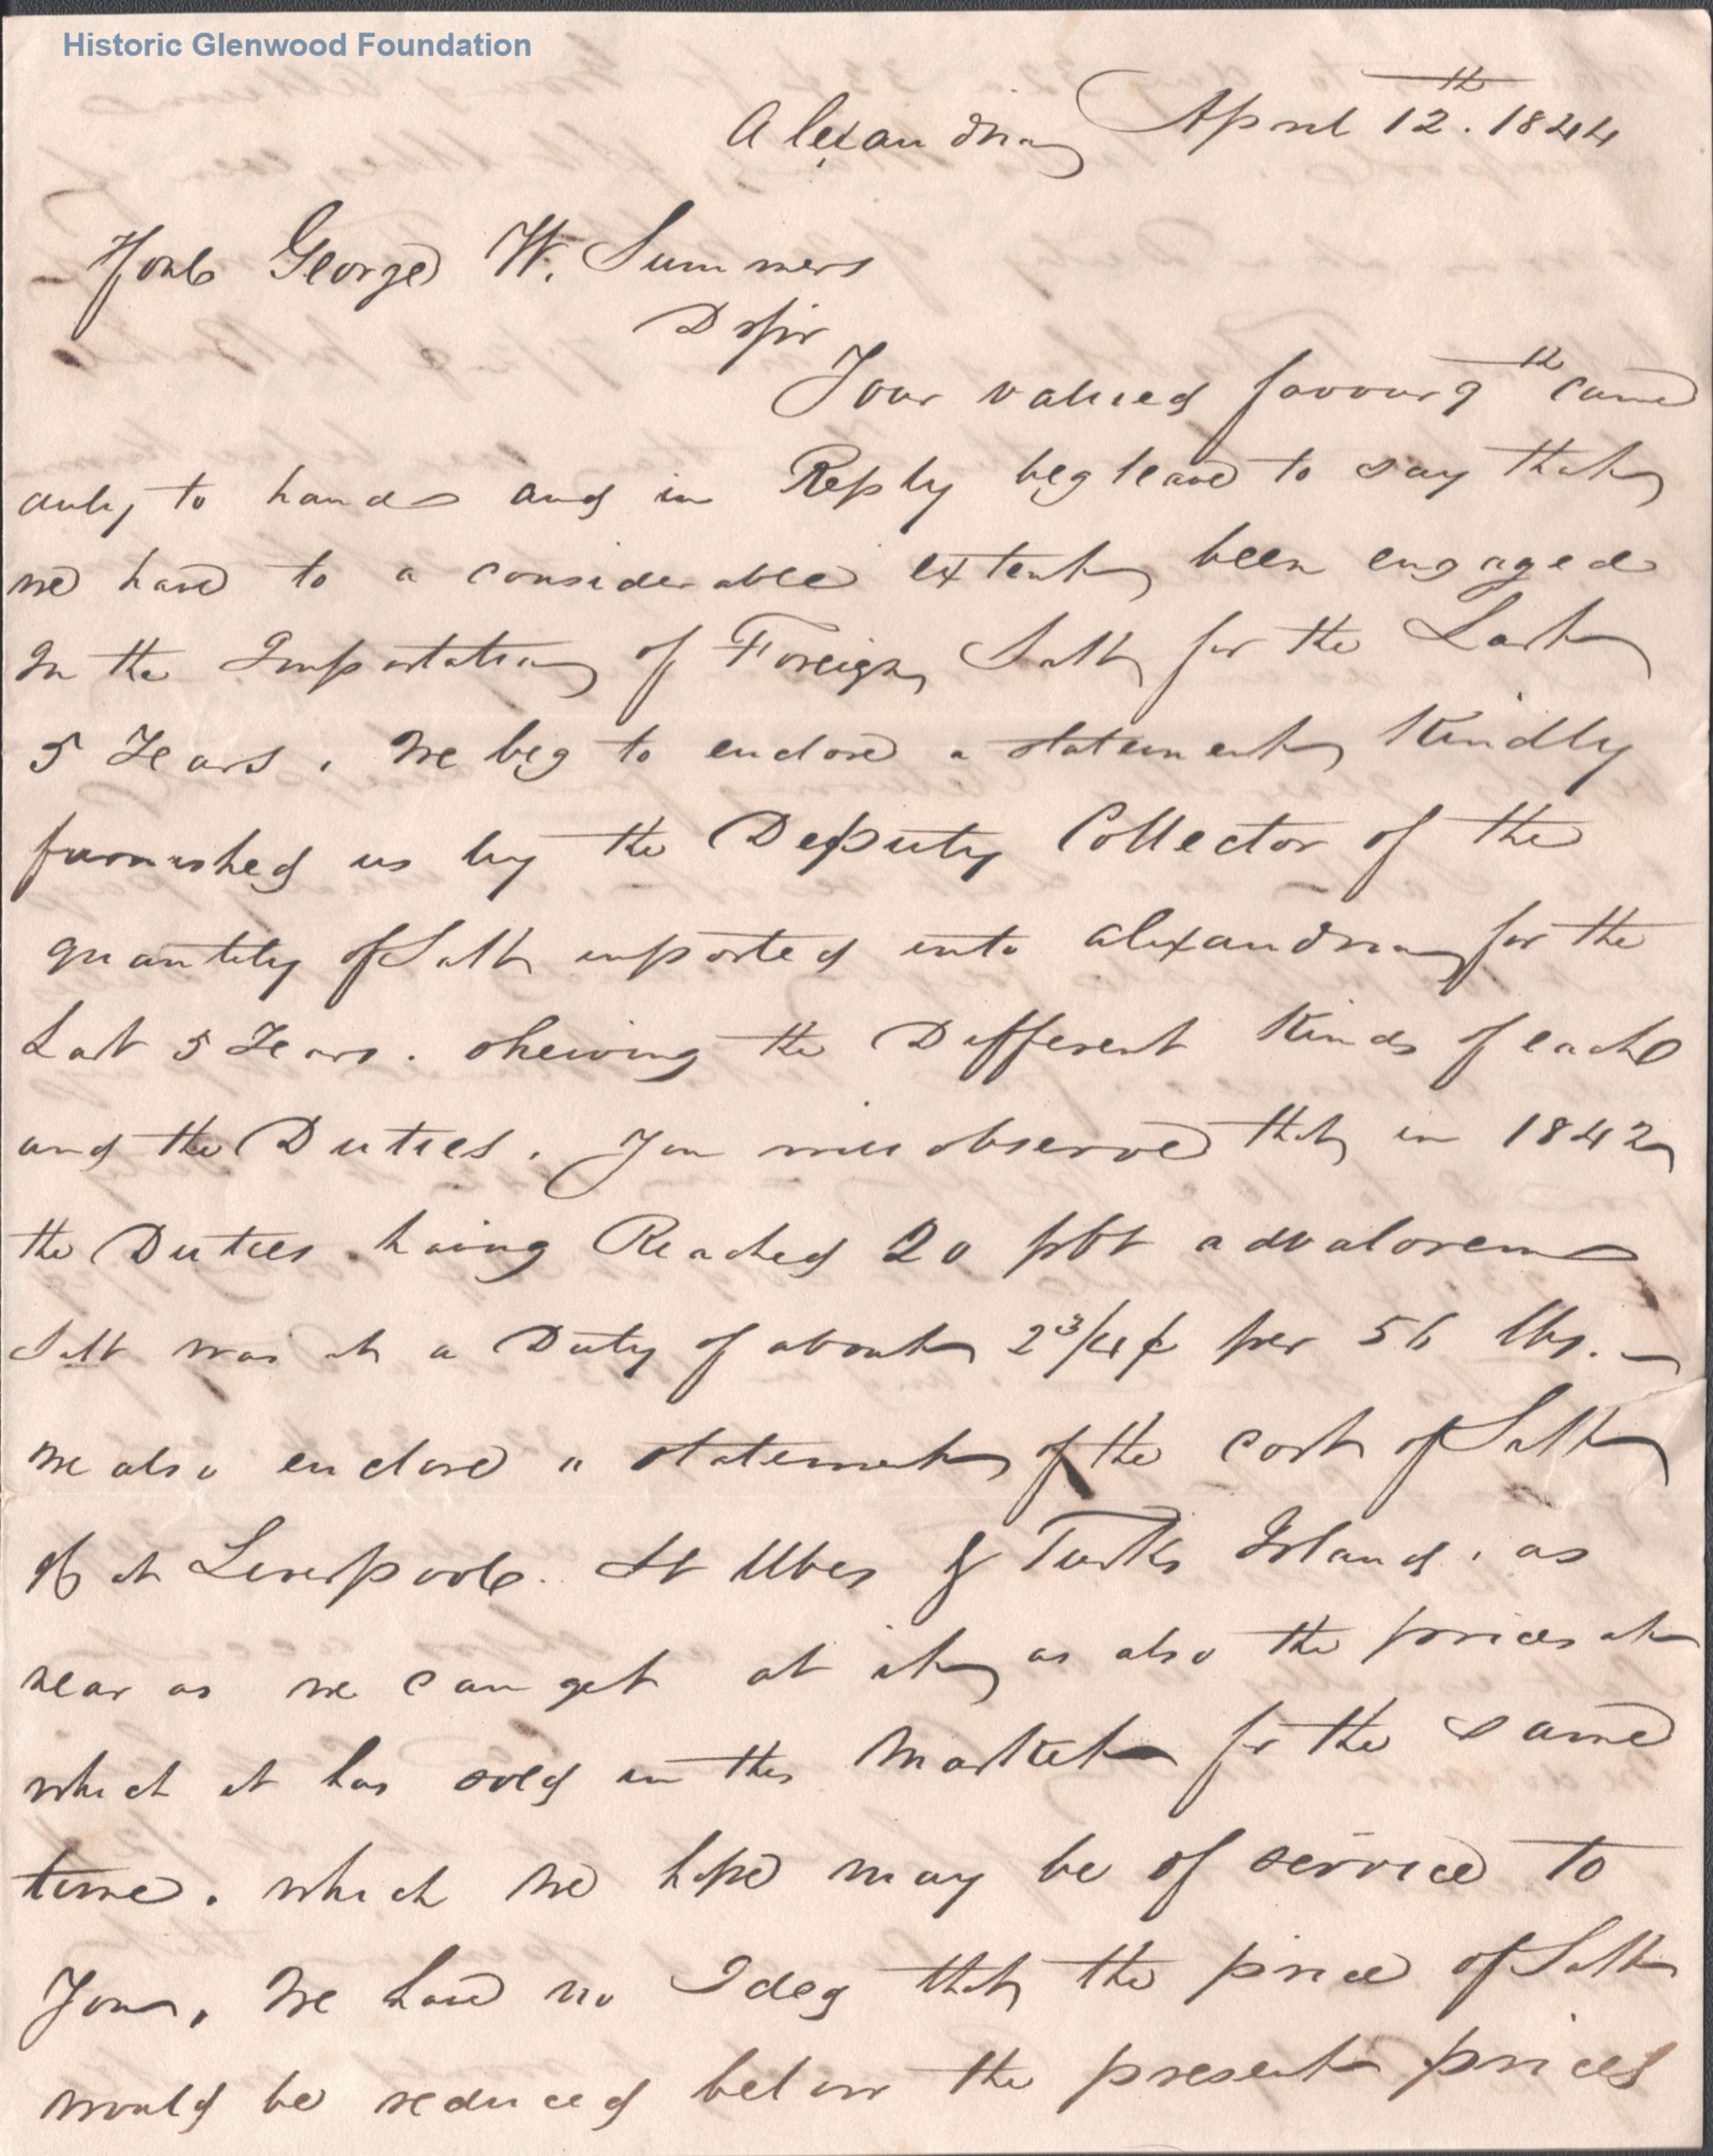 Historic Glenwood Foundation
Alexandria April 12th. 1844
Honble George W. Summers
D Sir
Your valued favour 9th came
duly to hand and in Reply beg leave to say that
we have to a considerable extent been engaged
In the Importation of Foreign Salt for the Last
5 Years. We beg to enclose a statement Kindly
furnished us by the Deputy Collector of the
quantity of Salt imported into alexandria for the
Last 5 Years. shewing the Different Kinds of each
and the Duties. You will observe that in 1842
the Duties having Reached 20 pCt advalorem
Salt was at a Duty of about 2 3/4¢ per 56 lbs. —
we also enclose a statement of the cost of Salt
at Liverpool. St Ubes & Turks Island. as
near as we can get at it, as also the prices at
which it has sold in this Market for the same
time. which we hope may be of service to
You, We have no Idea that the price of Salt
would be reduced below the present prices